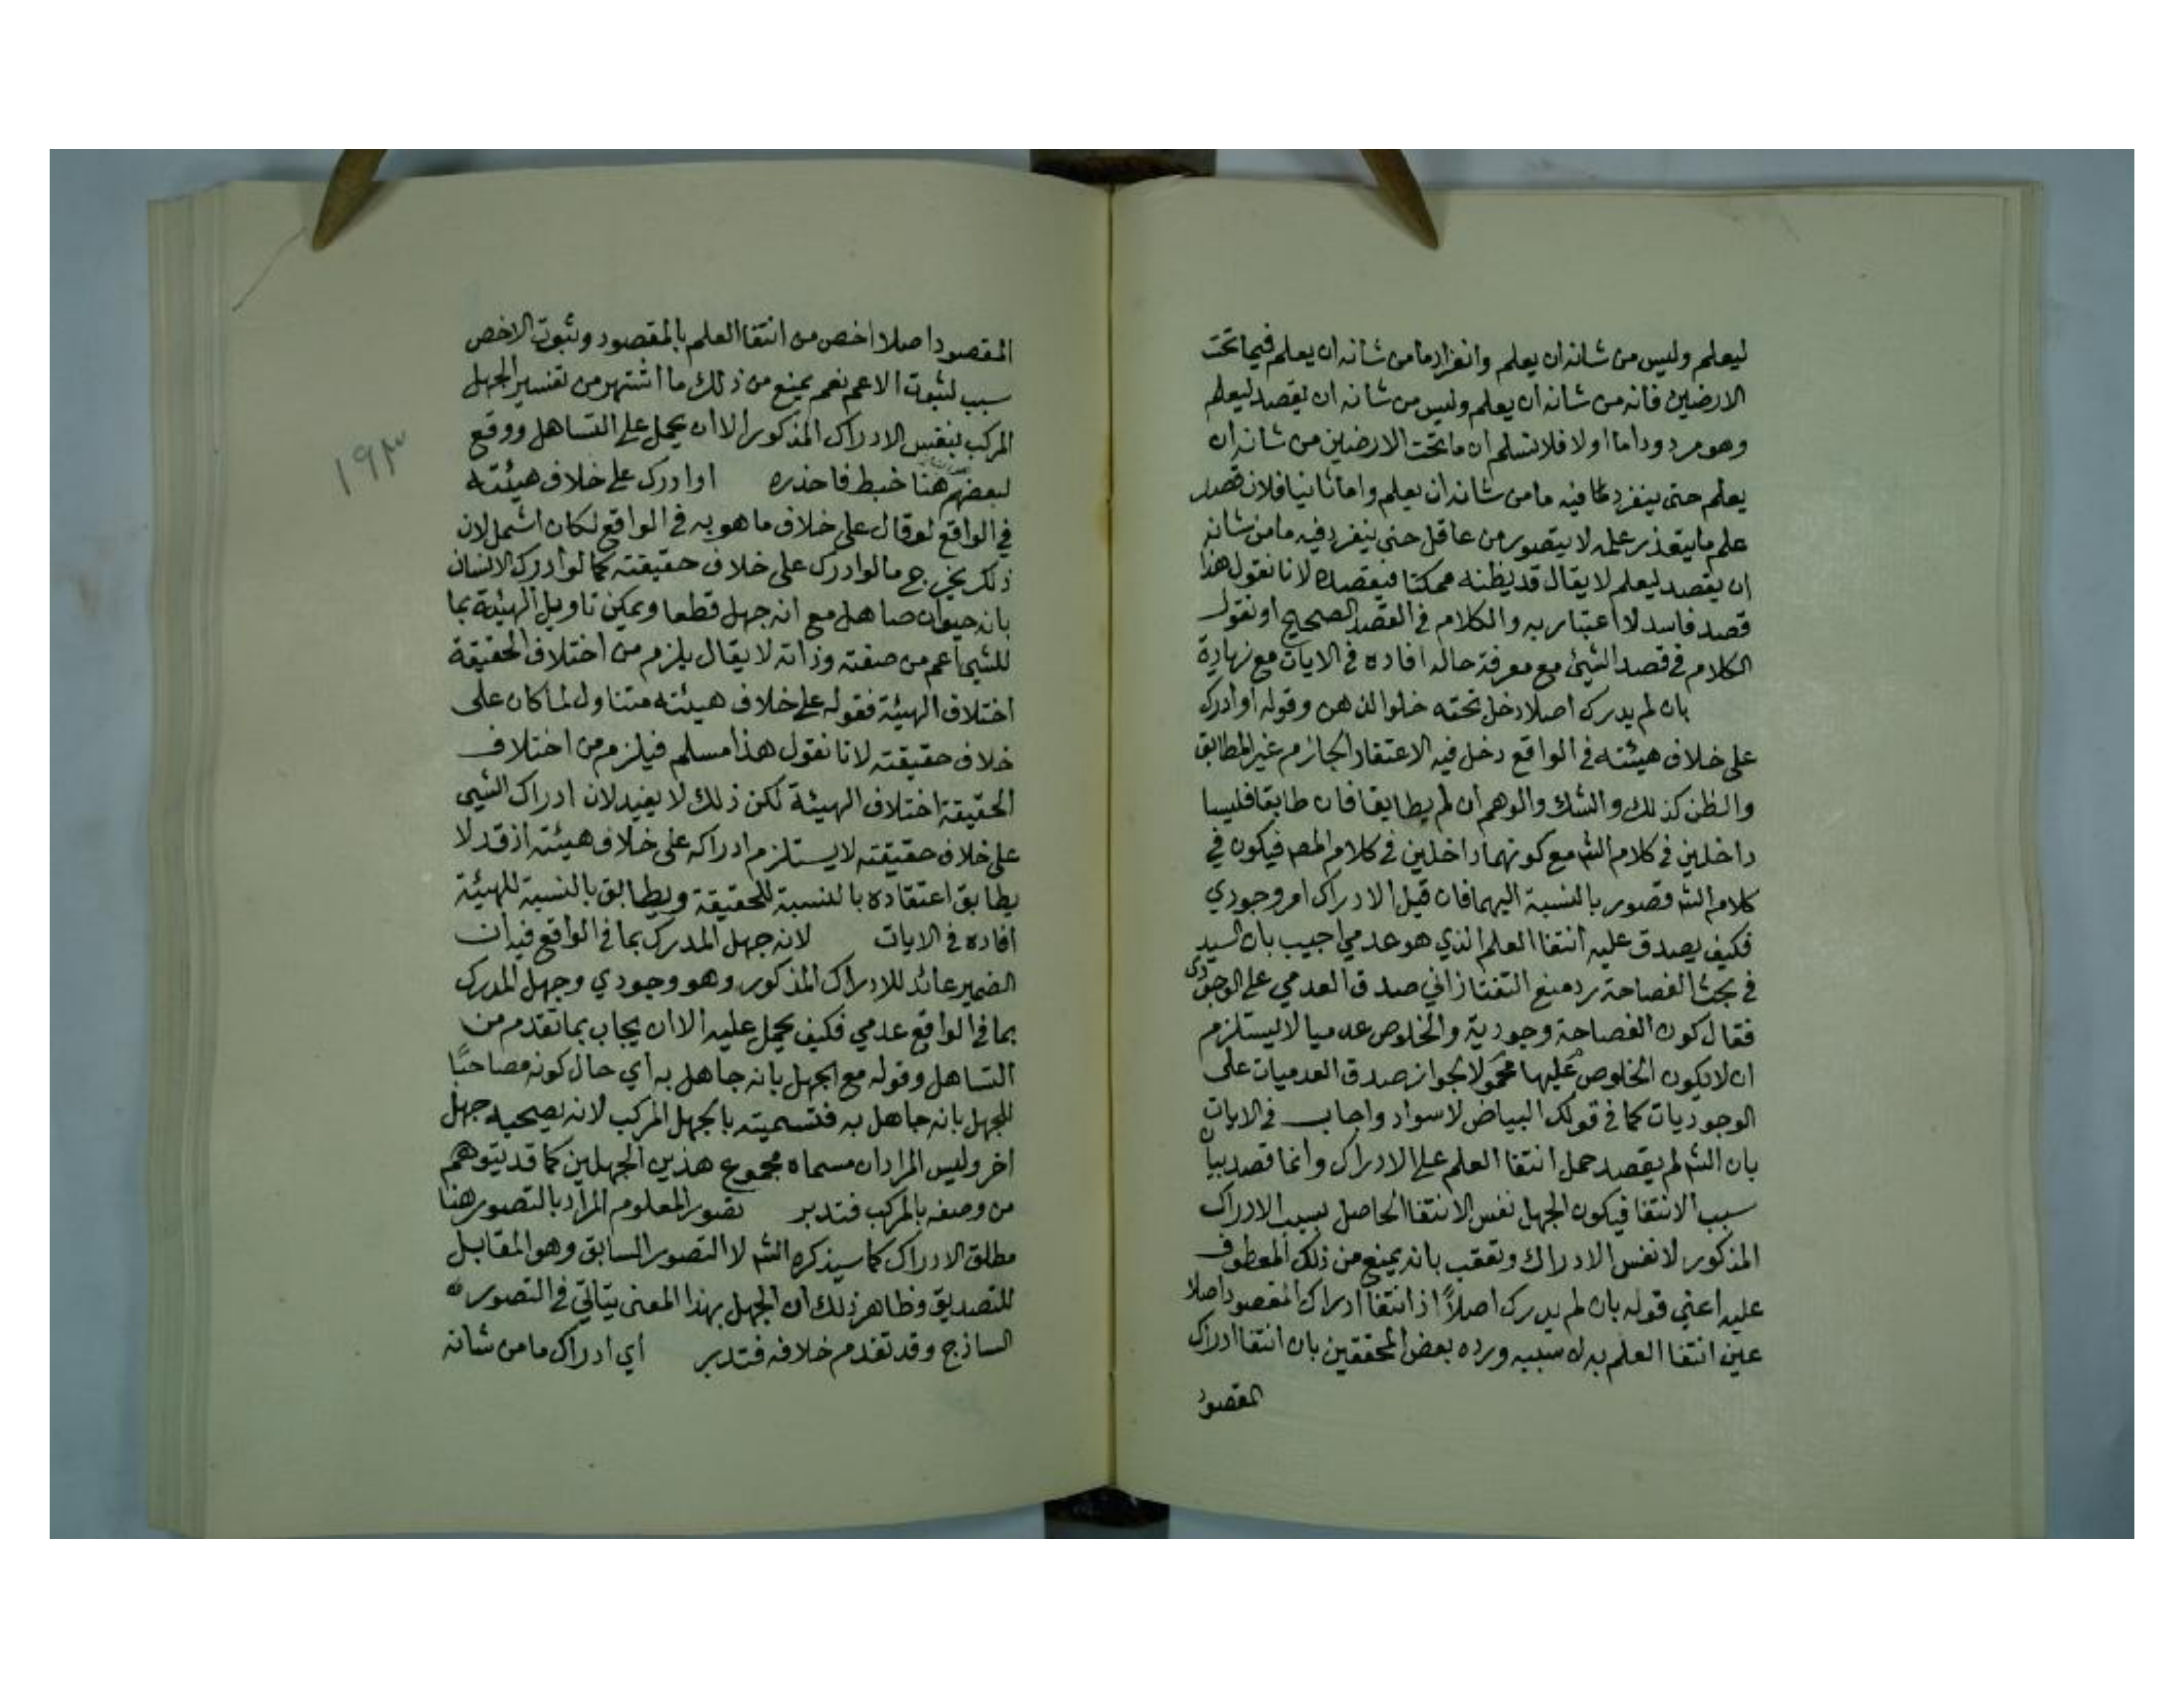 ليعلم وليس من شانه ان يعلم وانفراد ما من شانه ان يعلم فيما تحت
الارضين فانه من شانه ان يعلم وليس من شانه ان يقصد ليعلم
وهو مردود اما اولا فلا نسلم ان ما تحت الارضين من شانه ان
يعلم حتى ينفرد فيه ما من شانه ان يعلم واما ثانيا فلان قصد
علم ما يتعذر علمه لا يتصور من عاقل حتى ينفرد فيه ما من شانه
ان يقصد ليعلم لا يقال قد يظنه ممكنا فيقصده لانا نقول هذا
قصد فاسد لا اعتبار به والكلام في القصد الصحيح او نقول
الكلام في قصد الشيئ مع معرفة حاله افاده في الايات مع زيادة
بان لم يدرك اصلا دخل تحته خلوا الذهن وقوله او ادرك
على خلاف هيئته في الواقع دخل فيه الاعتقاد الجازم غير المطابق
والظن كذلك والشك والوهم ان لم يطابقا فان طابقا فليسا
داخلين في كلام الشه مع كونهما داخلين في كلام المصه فيكون في
كلام الشه قصور بالنسبة اليهما فان قيل الادراك امر وجودي
فكيف يصدق عليه انتفا العلم الذي هو عدمي اجيب بان السيد
في بحث الفصاحة رد منع التفتازاني صدق العدمي على الوجودي
فقال كون الفصاحة وجودية والخلوص عدميا لا يستلزم
ان لا يكون الخلوص عليها محمولا لجواز صدق العدميات على
الوجوديات كما في قولك البياض لاسواد واجاب في الايات
بان الشه لم يقصد حمل انتفا العلم على الادراك وانما قصد بيان
سبب الانتفا فيكون الجهل نفس الانتفا الحاصل بسبب الادراك
المذكور لا نفس الادراك وتعقب بانه يمنع من ذلك المعطوف
عليه اعني قوله بان لم يدرك اصلاً اذ انتفا ادراك المقصود اصلا
عين انتفا العلم به لا سببه ورده بعض المحققين بان انتفا ادراك
المقصود
المقصود اصلا اخص من انتفا العلم بالمقصود وثبوت الاخص
سبب لثبوت الاعم نعم يمنع من ذلك ما اشتهر من تفسير الجهل
المركب بنفس الادراك المذكور الا ان يحمل على التساهل ووقع
لبعضهم هنا خبط فاحذره او ادرك على خلاف هيئته
في الواقع لو قال على خلاف ما هو به في الواقع لكان اشمل لان
ذلك يخرج ما لو ادرك على خلاف حقيقته كما لو ادرك الانسان
بانه حيوان صاهل مع انه جهل قطعا ويمكن تاويل الهيئة بما
للشيئ اعم من صفته وذاته لا يقال يلزم من اختلاف الحقيقة
اختلاف الهيئة فقوله على خلاف هيئته متناول لما كان على
خلاف حقيقته لانا نقول هذا مسلم فيلزم من اختلاف
الحقيقة اختلاف الهيئة لكن ذلك لا يفيد لان ادراك الشيئ
على خلاف حقيقته لا يستلزم ادراكه على خلاف هيئته اذ قد لا
يطابق اعتقاده بالنسبة للحقيقة ويطابق بالنسبة للهيئة
افاده في الايات لانه جهل المدرك بما في الواقع فيه ان
الضمير عائد للادراك المذكور وهو وجودي وجهل المدرك
بما في الواقع عدمي فكيف يحمل عليه الا ان يجاب بما تقدم من
التساهل وقوله مع الجهل بانه جاهل به اي حال كونه مصاحبًا
للجهل بانه جاهل به فتسميته بالجهل المركب لانه يصحبه جهل
اخر وليس المراد ان مسماه مجموع هذين الجهلين كما قد يتوهم
من وصفه بالمركب فتدبر تصور المعلوم المراد بالتصور هنا
مطلق الادراك كما سيذكره الشه لا التصور السابق وهو المقابل
للتصديق وظاهر ذلك ان الجهل بهذا المعنى يتاتي في التصور
الساذج وقد تقدم خلافه فتدبر اي ادراك ما من شانه
١٩٣